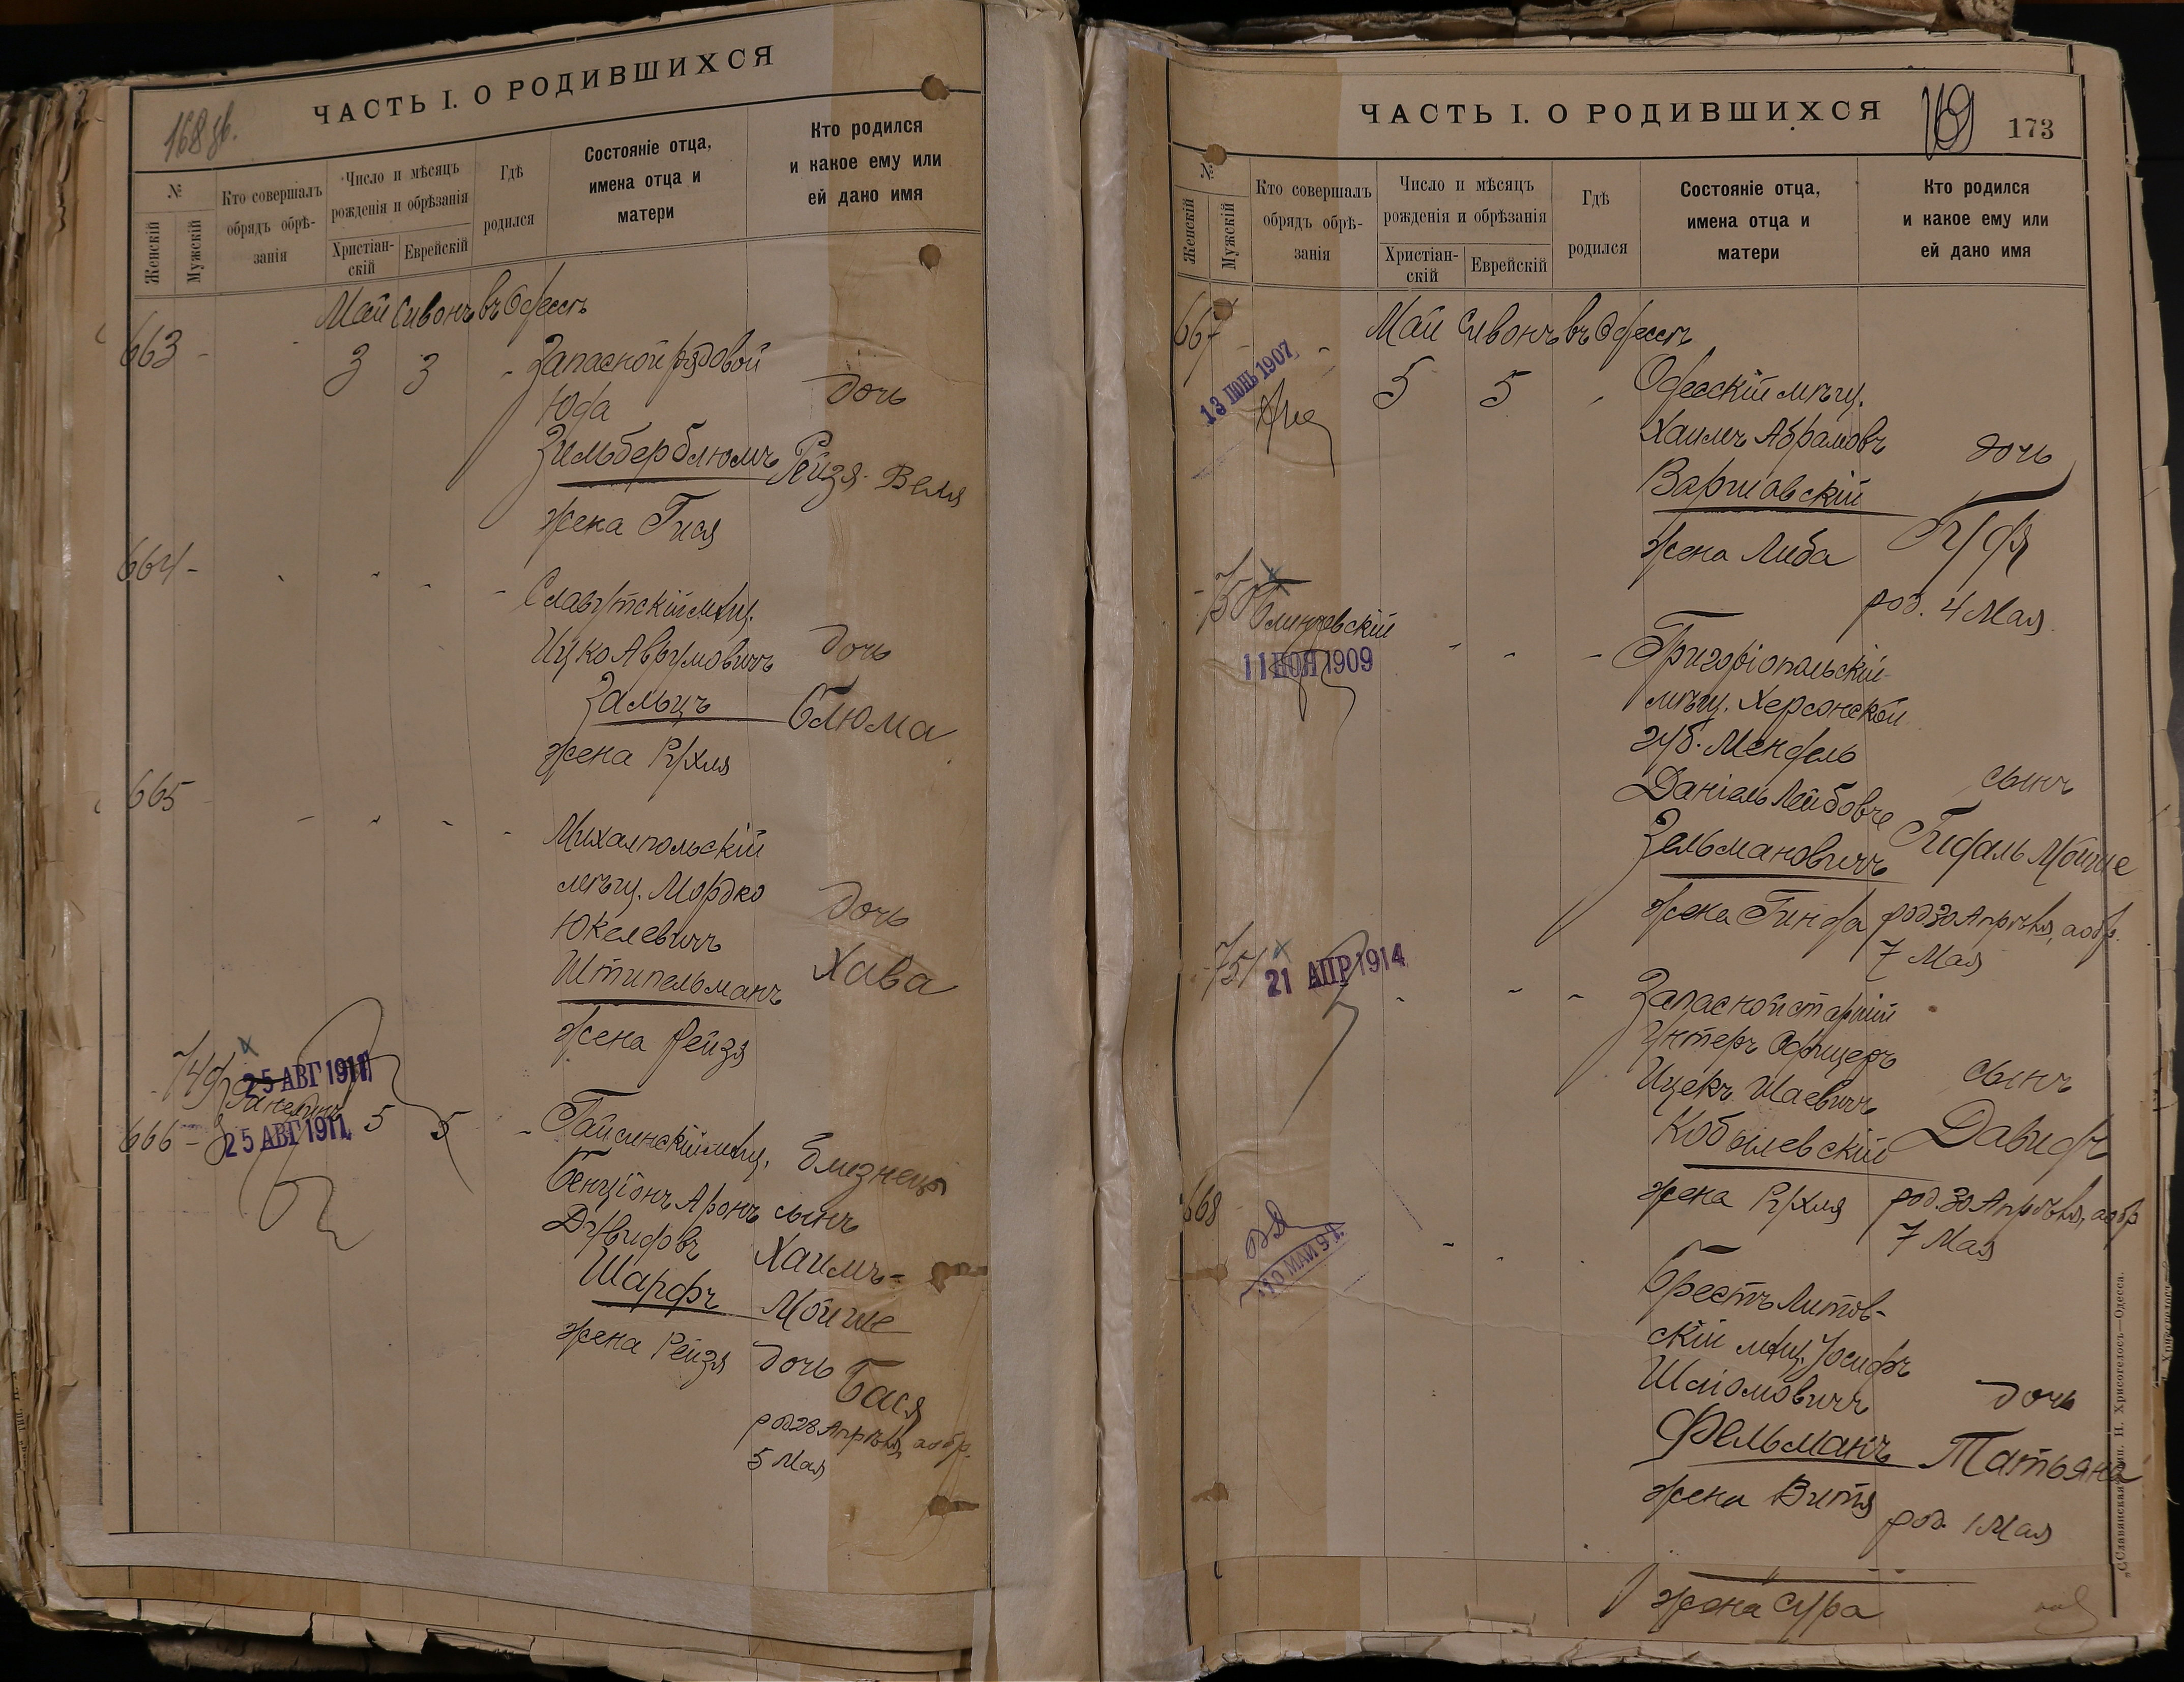 168 об.
ЧАСТЬ I. О РОДИВШИХСЯ
№
Женскій
Мужскій
Кто совершалъ
обрядъ обрѣ-
занія
Число и мѣсяцъ
рожденія и обрѣзанія
Христіан-
скій
Еврейскій
Гдѣ
родился
Состояніе отца,
имена отца и
матери
Кто родился
и какое ему или
ей дано имя
Май Сивонъ въ Одессѣ
663 - 3 3 - Запасной рядовой
Юда
дочь
Зильберблюмъ Рейзя-Веля
жена Гися
664 -
Славутскій мѣщ.
Ицко Аврумовичъ дочь
Зальцъ Блюма
жена Рухля
665
Михалпольскій
мѣщ. Мордко
Юкелевичъ дочь
Штипельманъ Хава
жена Рейзя
749
25 АВГ 1911
666 - 25 АВГ 1911 5 5 - Гайсинскій мѣщ. близнецы
Бенціонъ Аронъ сынъ
Дувидовъ Хаимъ-
Шарфъ Мойше
жена Рейзя дочь Бася
род 28 Апрѣля, а обр.
5 Мая
ЧАСТЬ I. О РОДИВШИХСЯ
169
173
№
Женскій
Мужскій
Кто совершалъ
обрядъ обрѣ-
занія
Число и мѣсяцъ
рожденія и обрѣзанія
Христіан-
скій
Еврейскій
Гдѣ
родился
Состояніе отца,
имена отца и
матери
Кто родился
и какое ему или
ей дано имя
Май Сивонъ въ Одессѣ
667
13 ІЮНЬ 1907
5 5 Одесскій мѣщ.
Хаимъ Абрамовъ дочь
Варшавскій
жена Либа
род. 4 Мая
750
11 НОЯ 1909
Григоріопольскій
мѣщ. Херсонской
губ. Мендель
Даніель Лейбовъ сынъ
Зельмановичъ Гидаль Мойше
жена Гинда род 30 Апрѣля, а обр.
7 Мая
751 21 АПР 1914
Запасной старшій
унтеръ Офицеръ
Ицекъ Шаевичъ сынъ
Кобылевскій Давидъ
жена Рухля род. 30 Апрѣля, а обр
7 Мая
668
Брестъ Литов-
скій мѣщ. Іосифъ
Шліомовичъ дочь
Фельманъ Татьяна
жена Витя род. 1 Мая
жена Сура
„Славянская" тип. Н. Хрисогелосъ—Одесса.